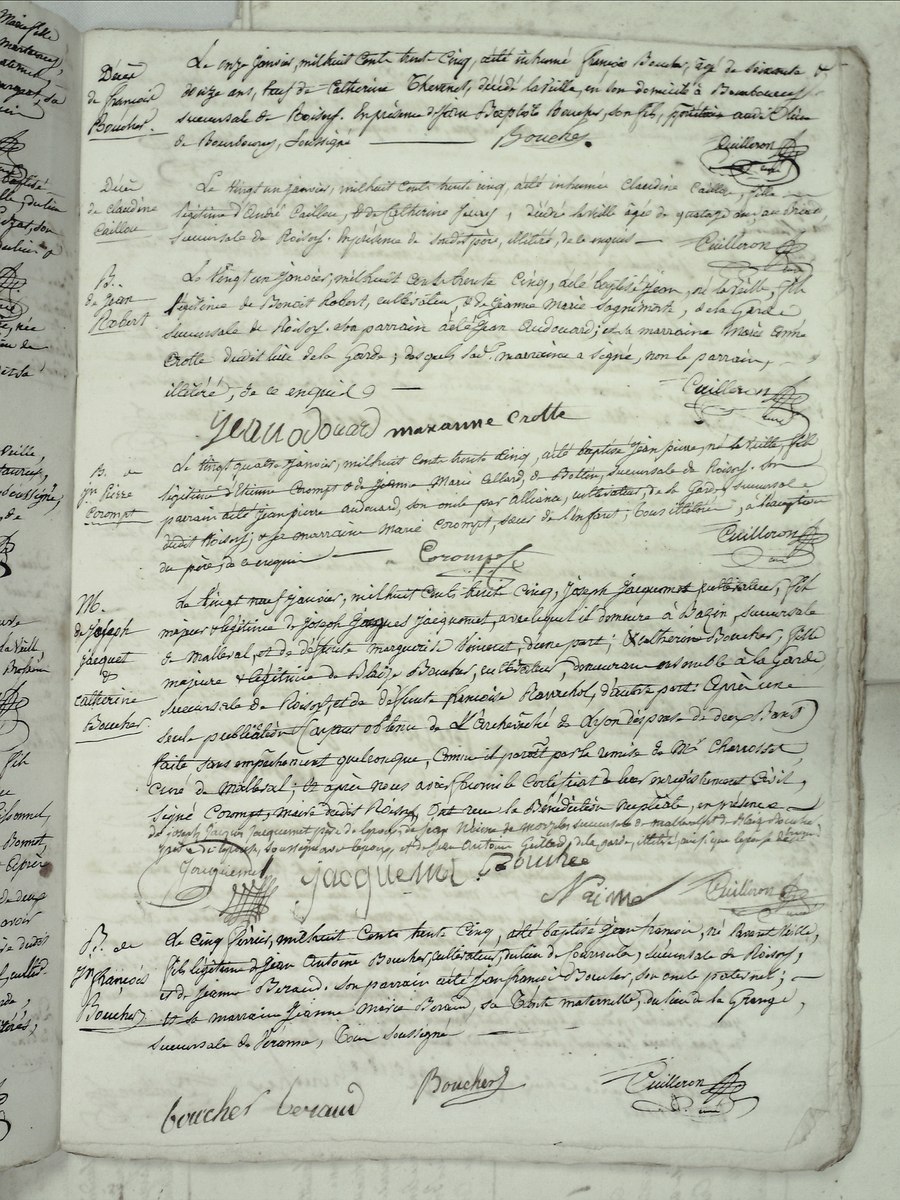 Décès
de françois
Boucher.
Le onze janvier, milhuit cent trente cinq, a été inhumé françois Boucher, agé de soixante &
onze ans, veuf de Catherine Thevenet, décédé la veille, en son domicile à
succursale de Roisey. En présence d'Jean Baptiste Boucher, son fils, audit lieu
de soussigné Boucher Cuilleron
Décès
de claudine
Caillou
Le vingt un janvier, milhuit cent trente cinq, a été inhumée Claudine Caillou, fille
légitime d'André Caillou, & de Catherine décédée la veille agée de
succursale de Roisey. En présence de sondit père, illitéré, de ce enquis Cuilleron
B.
de Jean
Robert
Le vingt un janvier, milhuit cent trente cinq, a été baptisé Jean, né la veille, fils
légitime de Benoit Robert, cultivateur, & de Jeanne Marie de la Garde
succursale de Roisey. son parrain a été Jean audouard; et sa marraine Marie anne
Crotte dudit lieu de la Garde; desquels la marraine a signé, non le parrain,
illitéré, de ce enquis Cuilleron
Jean odouard marianne crotte
B. de
jn Pierre
Corompt
Le vingt quatre janvier, milhuit cent trente cinq, a été baptisé Jean pierre, né la veille, fils
légitime d'Etienne Corompt & de Jeanne Marie allard, de succursale de Roisey. Son
parrain a été Jean pierre audouard, son oncle par alliance, cultivateur, de la Garde, succursale
dudit Roisey; & sa marraine Marie Corompt sœur de l'enfant; tous illitérés, à l'exception
du père, de ce enquis Corompt Cuilleron
M.
de Joseph
jacquet
&
Catherine
Boucher
Le vingt neuf janvier, milhuit cent trente cinq, Joseph Jacquemet cultivateur, fils
majeur & légitime de Joseph Jacques Jacquemet, avec lequel il demeure à Bazin, succursale
de Malleval, et de défunte marguerite Vincent, d'une part; & Catherine Boucher, fille
majeure & légitime de Blaize Boucher, cultivateur, demeurant ensemble à la Garde
succursale de Roisey, et de défunte françoise Ravachol, d'autre part: Après une
seule publication (ayant obtenu de L'archevêché de Lyon dispense de deux Bans)
faite sans empêchement quelconque, comme il paroît par la remise de Mr Charrosset,
curé de malleval; & après nous avoir fourni le Certificat de leur enregistrement civil,
signé Corompt, maire dudit Roisey, ont reçu la Bénédiction nuptiale, en présence
de joseph Jacques Jacquemet père de l'époux, de Jean Naime de succursale de malleval, de Blaize Boucher,
père de l'épouse, soussignés avec l'époux, et de Jean Antoine de la garde, illitéré, ainsi que l'épouse
Jacquemet jacquemet Bouché
Naime Cuilleron
B. de
Jn françois
Boucher
Le cinq février, milhuit cent trente cinq, a été baptisé Jean françois, né l'avant veille,
fils légitime de Jean Antoine Boucher, cultivateur, du lieu de succursale de Roisey,
et de Jeanne Beraud. Son parrain a été Jean françois Boucher, son oncle paternel;
et sa marraine Jeanne Marie Beraud, sa tante maternelle, du lieu de la Grange,
succursale de Véranne, tous soussignés
boucher beraud Boucher Cuilleron